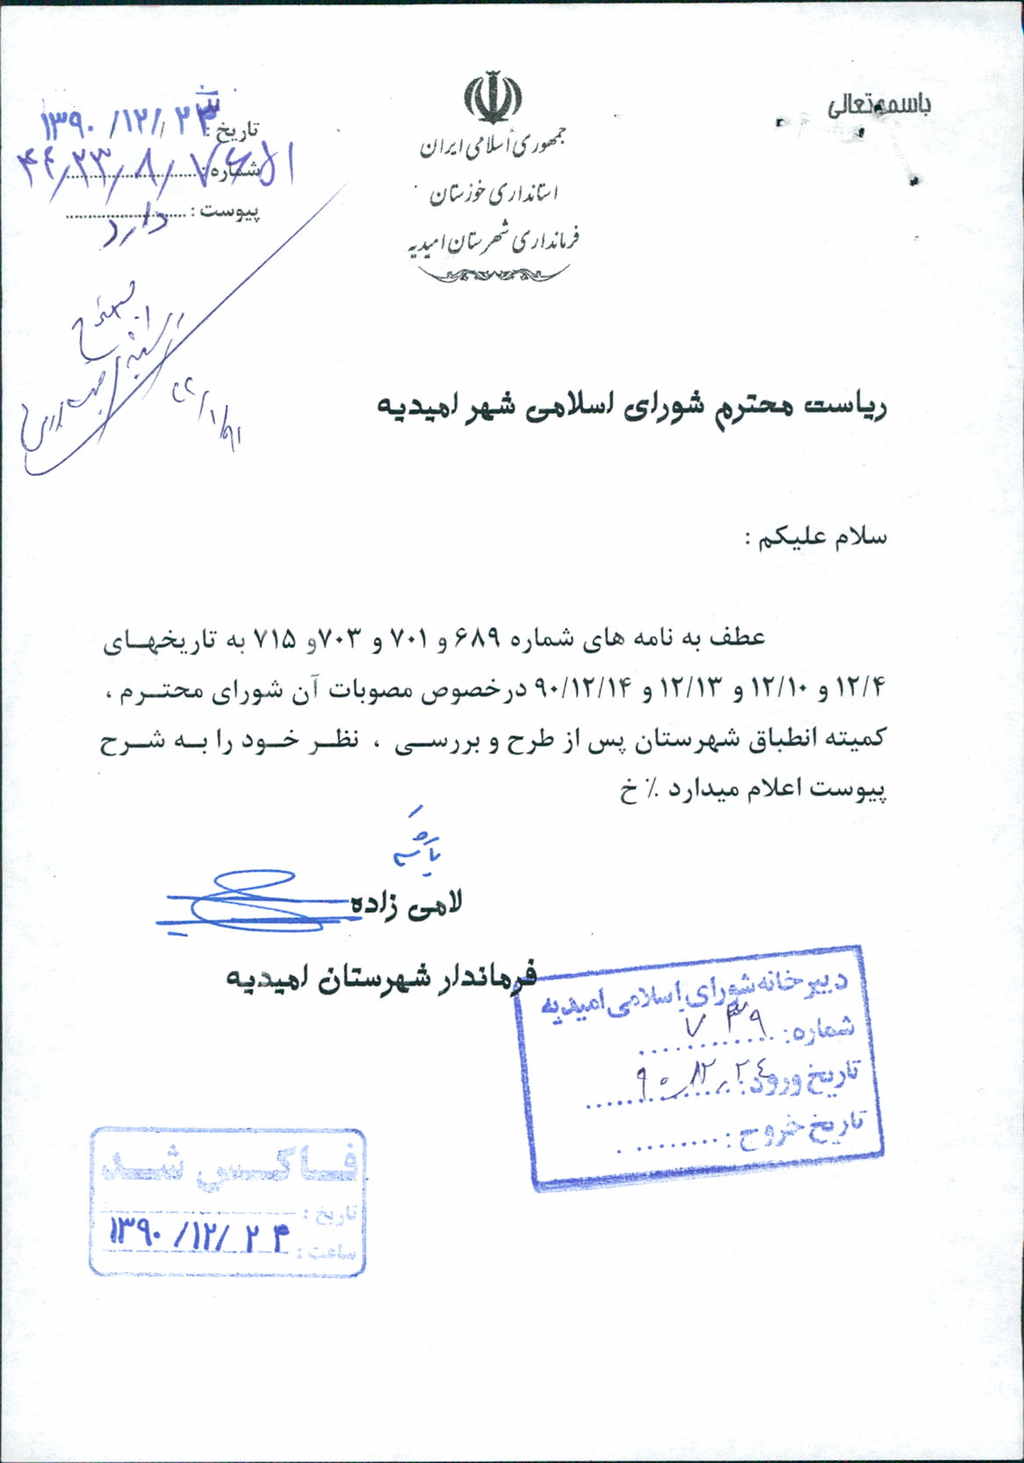 باسمه‌تعالی
جمهوری اسلامی ایران
استانداری خوزستان
فرمانداری شهرستان امیدیه
تاریخ : ۱۳۹۰/۱۲/۲۳
شماره :
پیوست : دارد
۹۱/۱/۲۲
ریاست محترم شورای اسلامی شهر امیدیه
سلام علیکم :
عطف به نامه های شماره ۶۸۹ و ۷۰۱ و ۷۰۳و ۷۱۵ به تاریخهای
۱۲/۴ و ۱۲/۱۰ و ۱۲/۱۳ و ۹۰/۱۲/۱۴ درخصوص مصوبات آن شورای محترم ،
کمیته انطباق شهرستان پس از طرح و بررسی ، نظر خود را به شرح
پیوست اعلام میدارد ٪ خ
لامی زاده
فرماندار شهرستان امیدیه
دبیرخانه شورای اسلامی امیدیه
شماره: ۷۳۹
تاریخ ورود: ۹۰/۱۲/۲۴
تاریخ خروج :
فاکس شد
تاریخ :
۱۳۹۰/۱۲/۲۴
ساعت :